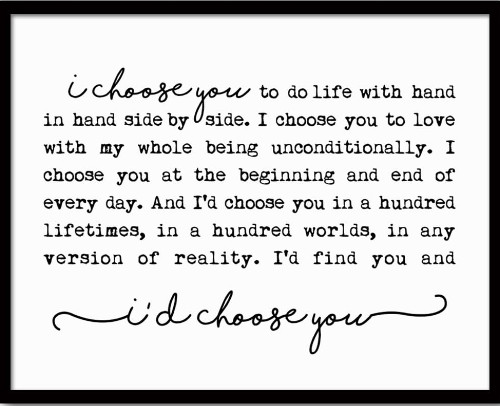 i choose you to do life with hand
in hand side by side. I choose you to love
with my whole being unconditionally. I
choose you at the beginning and end of
every day. And I'd choose you in a hundred
lifetimes, in a hundred worlds, in any
version of reality. I'd find you and
i'd choose you